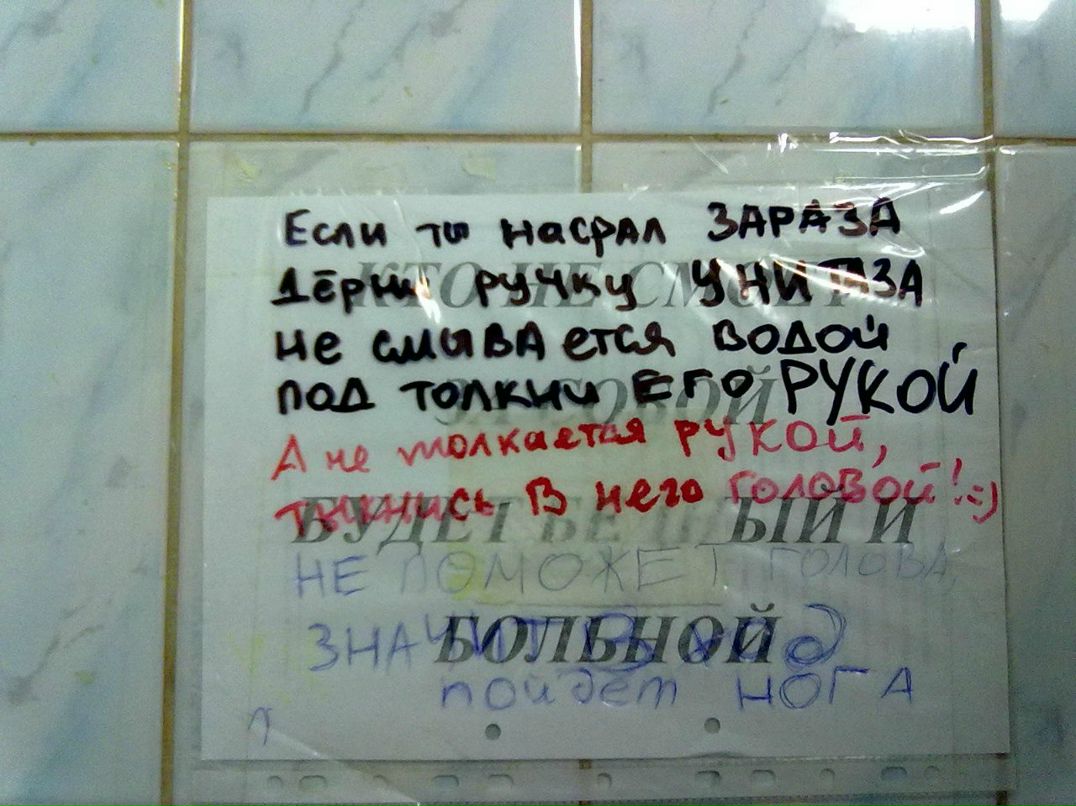 Если ты насрал ЗАРАЗА
КТО НЕ СМОЕТ
дёрни ручку УНИТАЗА
не смывается водой
под толкни ЕГО РУКОЙ
ЗА СОБОЙ
А не толкается рукой,
тыкнись в него головой! =)
БУДЕТ БЕДНЫЙ И
НЕ ПОМОЖЕТ ГОЛОВА,
ЗНАЧИТ В ход
БОЛЬНОЙ
пойдет НОГА